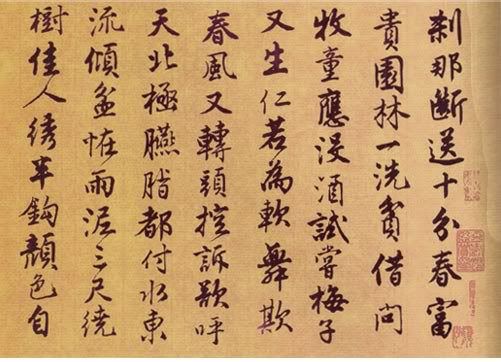 剎那斷送十分春富
貴園林一洗貧借問
牧童應沒酒試嘗梅子
又生仁若為軟舞欺
春風又轉頭控訴欲呼
天北極臙脂都付水東
流傾盆恠雨泥三尺繞
樹佳人綉半鈎顏色自